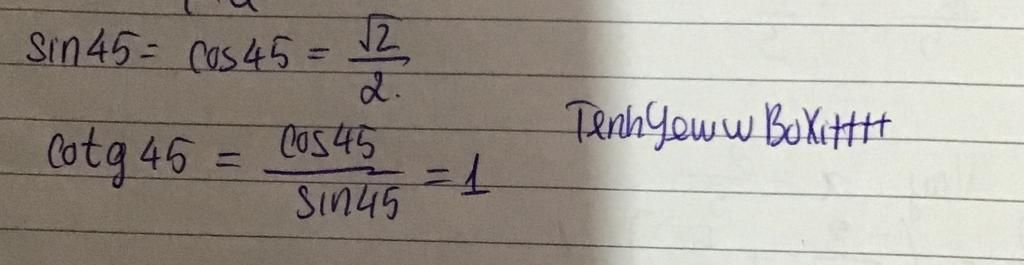 sin45 = cos45 = √2/2.
cotg 45 = cos45/sin45 = 1
TenhYeww BoXitttt